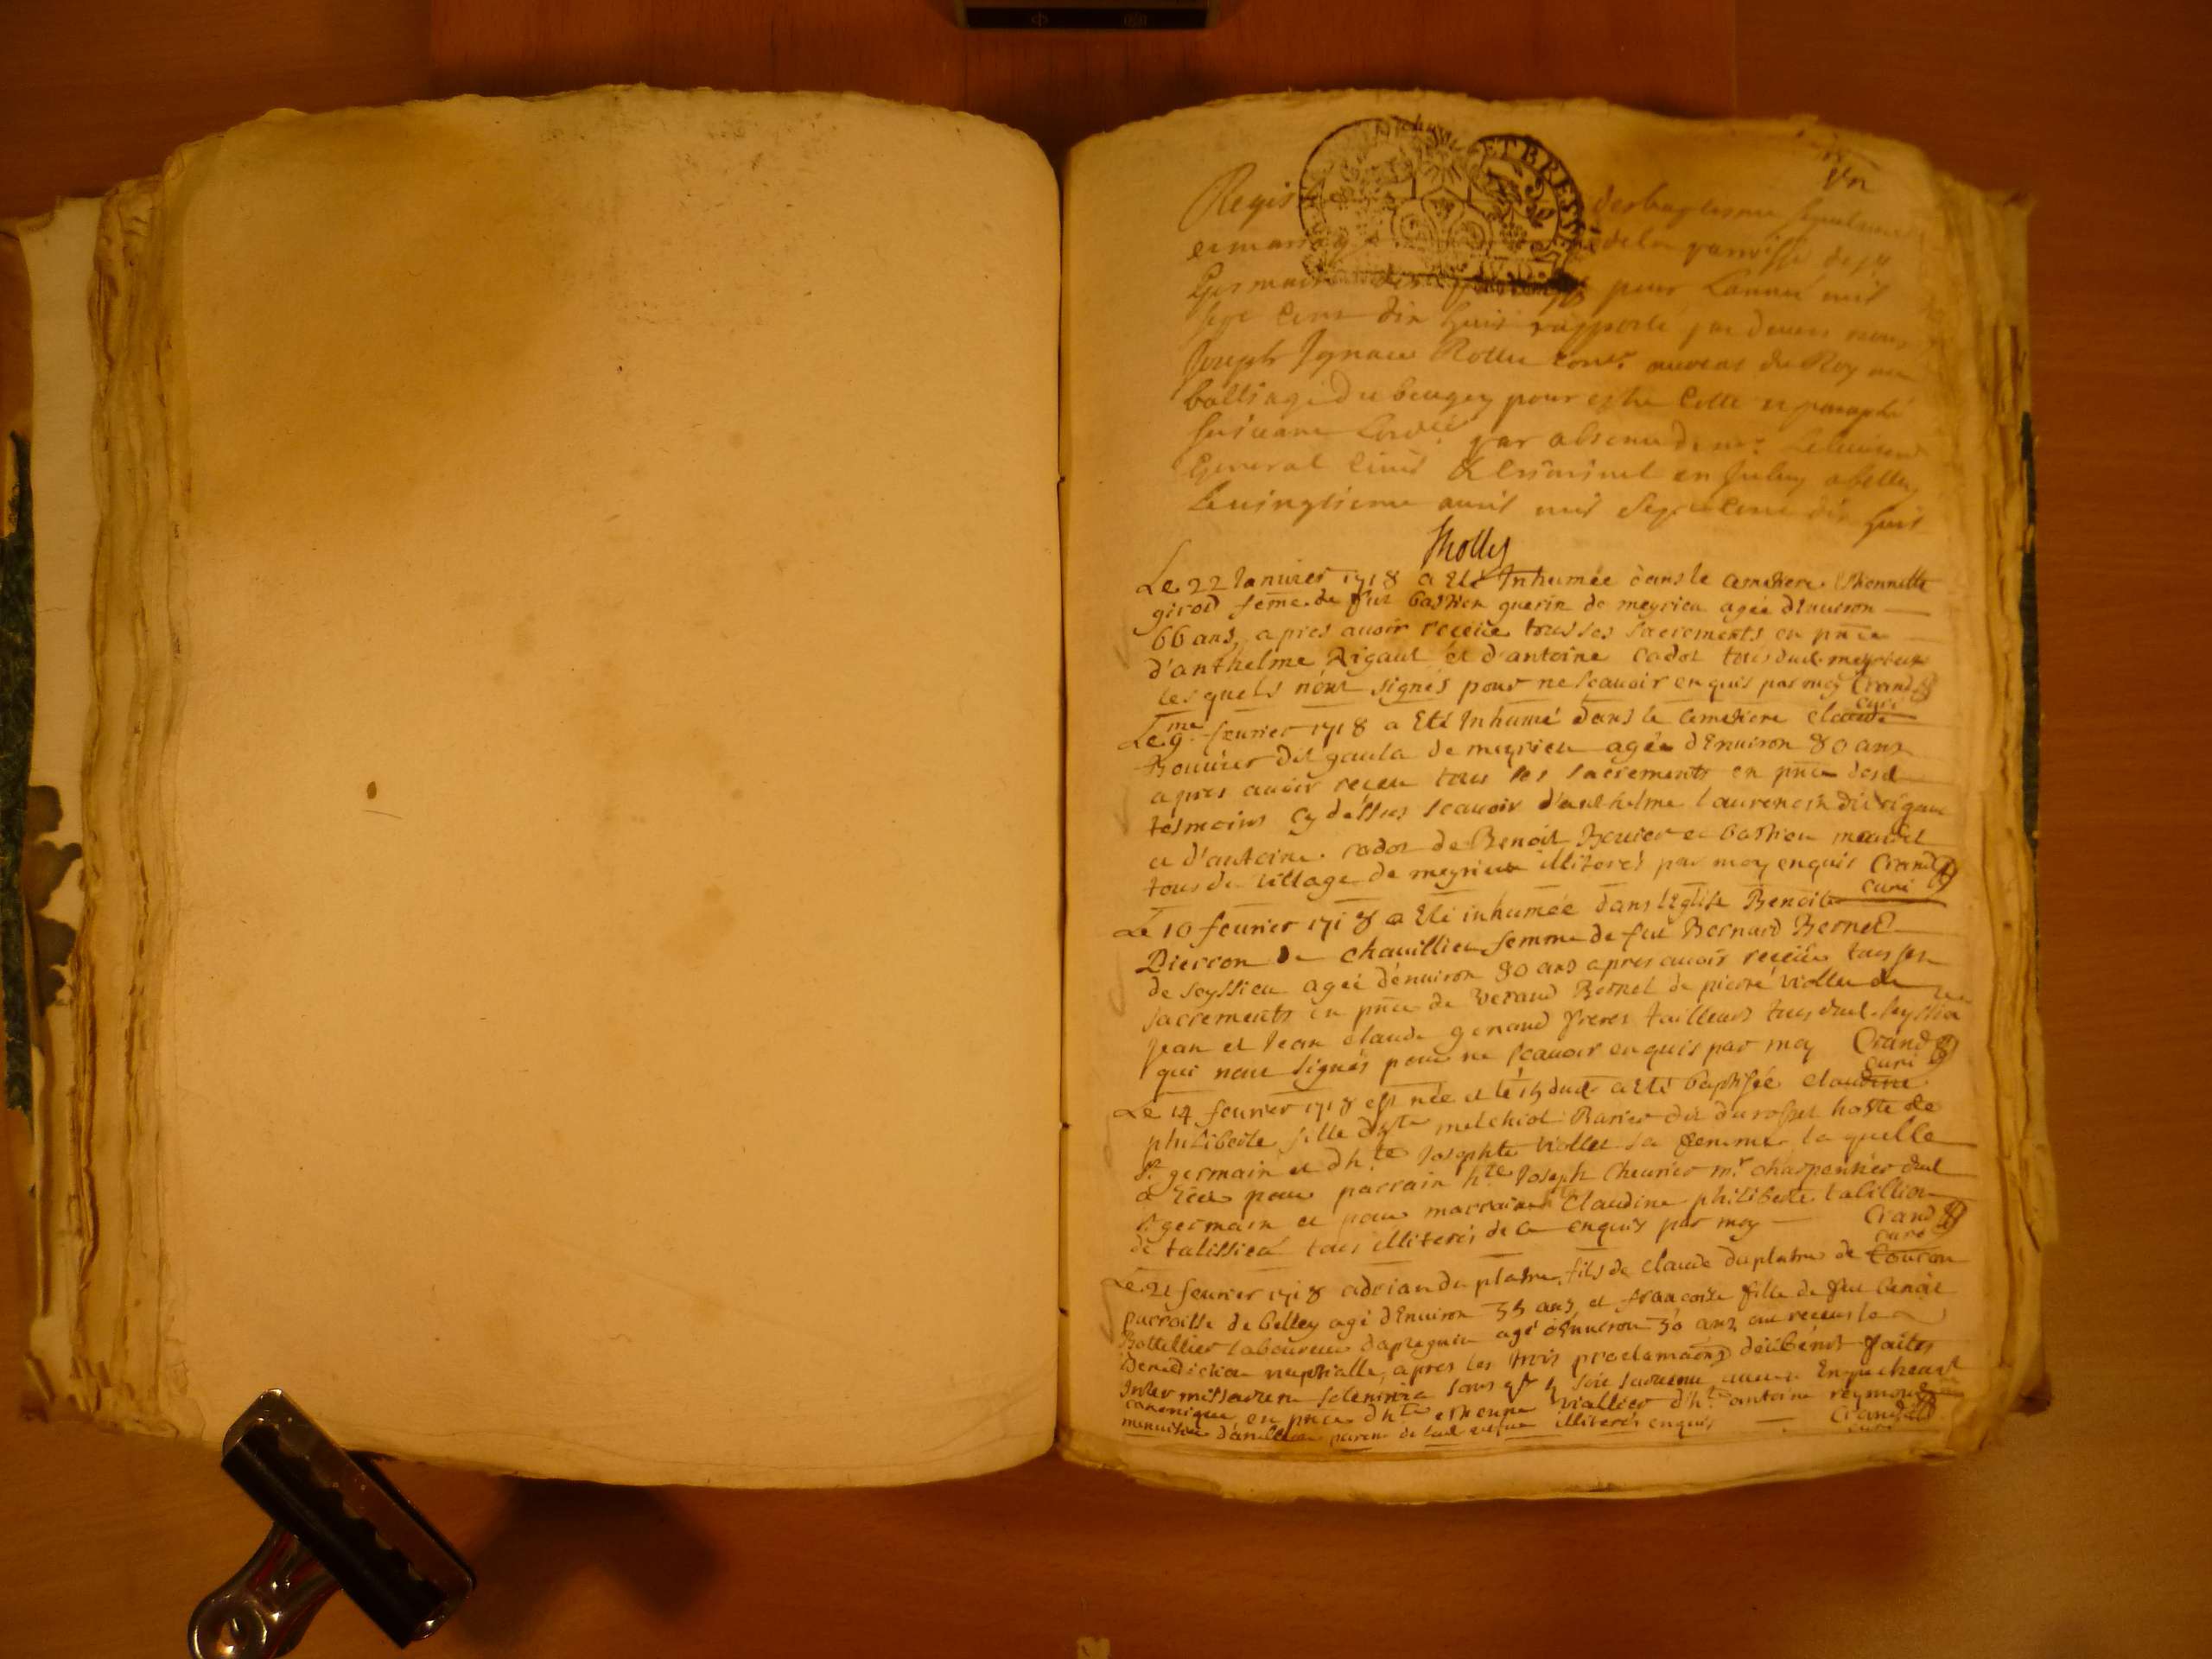 Vn
ET BRESSE
Regis des baptesme sepulture
et mariage de la parroisse de st
Germain pour Lanneé mil
sept cens dix huit rapporté par devant nous
Joseph Ignace Rollie Conr. auocat du Roy au
balliage du beugey pour estre Cotté et paraphé
suiuant par absence de mr. Lelieutenant
General Ciuil & Criminel en Bugey a belley
Le uingtieme auril mil Sept cens dix huit
Le 22 Januier 1718 a Eté Inhumée dans le Cemetiere Ethiennette
girod feme de feu bastien guerin de meyrieu ageé dEnuiron
66 ans, apres auoir receüe tous ses sacrements en pnce
d'anthelme Rigaut et d'antoine cador tous dud. meyrieu
les quels n'ont signés pour ne scauoir enquis par moy Crand
curé
Le 9me feurier 1718 a Eté Inhumé dans le Cemetiere claude
Bouuier dit gaula de meyrieu agée dEnuiron 80 ans
apres auoir receu tous les sacrements en pnce desd
tesmoins cy dessus scauoir d'anthelme laurencin dit rigaut
et d'antoine cador de Benoit Bouier et bastien
tous du uillage de meyrieu illiterés par moy enquis Crand
curé
Le 10 feurier 1718 a Eté inhumée dans lEglise Benoite
Pierron de chauillieu femme de feu Bernard Bernet
de seyssieu ageé dénuiron 80 ans apres auoir receüe tous ses
sacrements en pnce de Beraud Bernet de pierre viollet de
Jean et Jean claude genaud freres tailleurs tous dud. seyssieu
qui n'ont signés pour ne scauoir enquis par moy Crand
curé
Le 14 feurier 1718 est née et le 15 dud. a Eté baptisée claudine
philiberte fille dhte melchiol Barier dit durosset hoste de
st. germain et dh.te Josephte viollet sa femme, la quelle
a Eü pour parrain hte Joseph cheurier mr. charpentier dud
st. germain et pour marraine Claudine philiberte talillion
de talissieu tous illiterés de ce enquis par moy Crand
curé
Le 21 feurier 1718 adrian du platre, fils de claude duplatre de Couron
parroisse de belley agé dEnuiron 35 ans, et françoise fille de feu benoit
Bottellier laboureur dapregnin agé dEnuiron 30 ans ont receus la
Benediction nuptialle, apres les trois proclamaõns faites
Inter missarum solemnia sans qu'il y soit suruenu aucun Enpechement
canonique, en pnce dhte estienne Viallier d'h.te antoine reymond
menuisier illiterés enquis Crand
curé